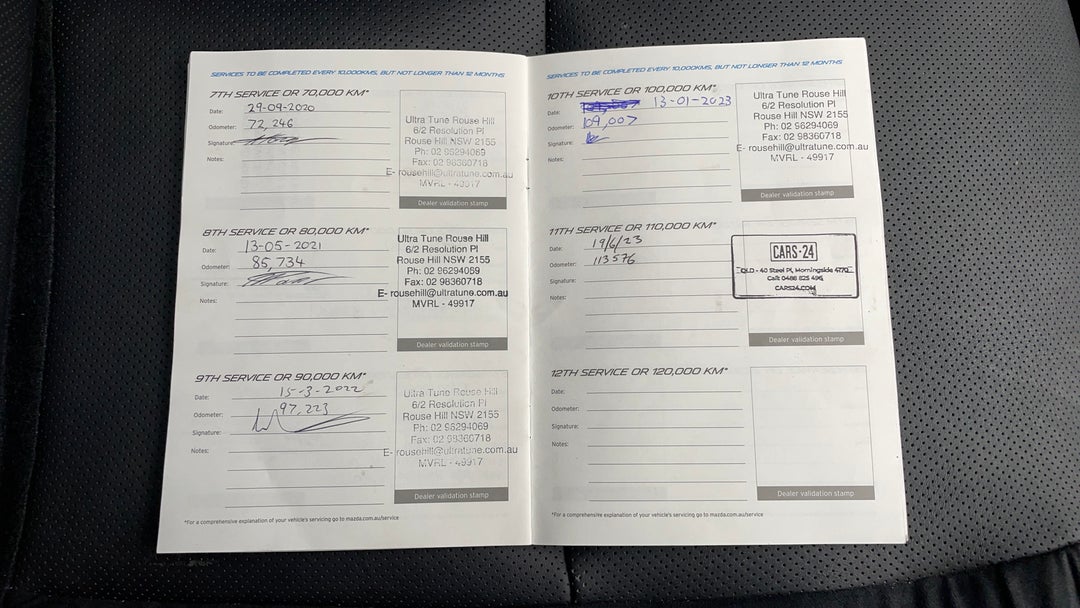 SERVICES TO BE COMPLETED EVERY 10,000KMS, BUT NOT LONGER THAN 12 MONTHS
7TH SERVICE OR 70,000 KM*
Date: 29-09-2020
Odometer: 72,246
Signature:
Notes:
Ultra Tune Rouse Hill
6/2 Resolution Pl
Rouse Hill NSW 2155
Ph: 02 96294069
Fax: 02 98360718
E- rousehill@ultratune.com.au
MVRL - 49917
Dealer validation stamp
8TH SERVICE OR 80,000 KM*
Date: 13-05-2021
Odometer: 85,734
Signature:
Notes:
Ultra Tune Rouse Hill
6/2 Resolution Pl
Rouse Hill NSW 2155
Ph: 02 96294069
Fax: 02 98360718
E- rousehill@ultratune.com.au
MVRL - 49917
Dealer validation stamp
9TH SERVICE OR 90,000 KM*
Date: 15-3-2022
Odometer: 97,223
Signature:
Notes:
Ultra Tune Rouse Hill
6/2 Resolution Pl
Rouse Hill NSW 2155
Ph: 02 96294069
Fax: 02 98360718
E- rousehill@ultratune.com.au
MVRL - 49917
Dealer validation stamp
*For a comprehensive explanation of your vehicle's servicing go to mazda.com.au/service
SERVICES TO BE COMPLETED EVERY 10,000KMS, BUT NOT LONGER THAN 12 MONTHS
10TH SERVICE OR 100,000 KM*
Date: 13-01-2023
Odometer: 109,007
Signature:
Notes:
Ultra Tune Rouse Hill
6/2 Resolution Pl
Rouse Hill NSW 2155
Ph: 02 96294069
Fax: 02 98360718
E- rousehill@ultratune.com.au
MVRL - 49917
Dealer validation stamp
11TH SERVICE OR 110,000 KM*
Date: 19/6/23
Odometer: 113576
Signature:
Notes:
CARS·24
QLD - 40 Steel Pl, Morningside 4170
Call: 0488 825 496
CARS24.COM
Dealer validation stamp
12TH SERVICE OR 120,000 KM*
Date:
Odometer:
Signature:
Notes:
Dealer validation stamp
*For a comprehensive explanation of your vehicle's servicing go to mazda.com.au/service